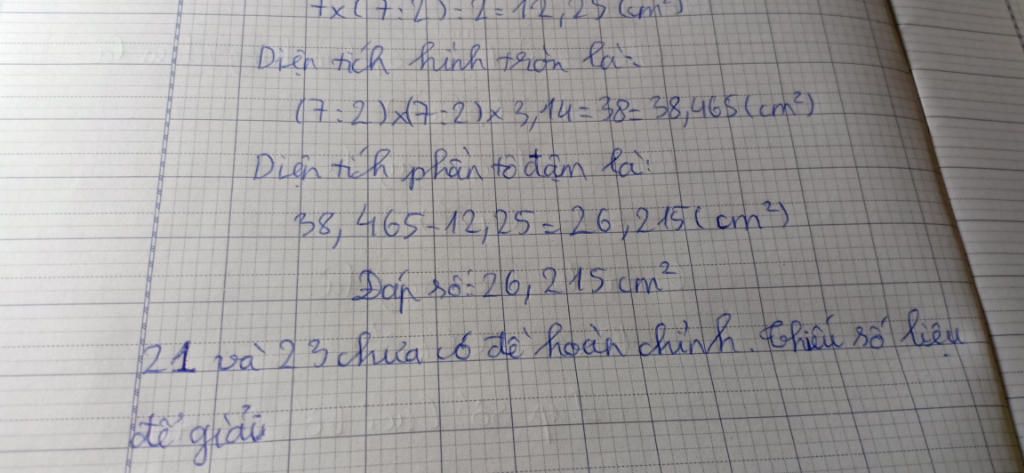 7x(7:2):2=12,25(cm²)
Diện tích hình tròn là:
(7:2)x(7:2)x3,14=38=38,465(cm²)
Diện tích phần tô đậm là:
38,465-12,25=26,215(cm²)
Đáp số:26,215cm²
21 và 23 chưa có đề hoàn chỉnh. thiếu số liệu
để giải